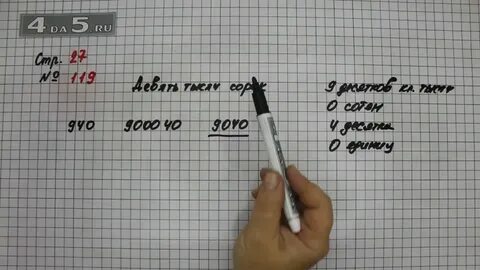 4DA5.RU
Стр. 27
№ 119
Девять тысяч сорок
940 900040 9040
9 десятков кл. тысяч
0 сотен
4 десятка
0 единиц